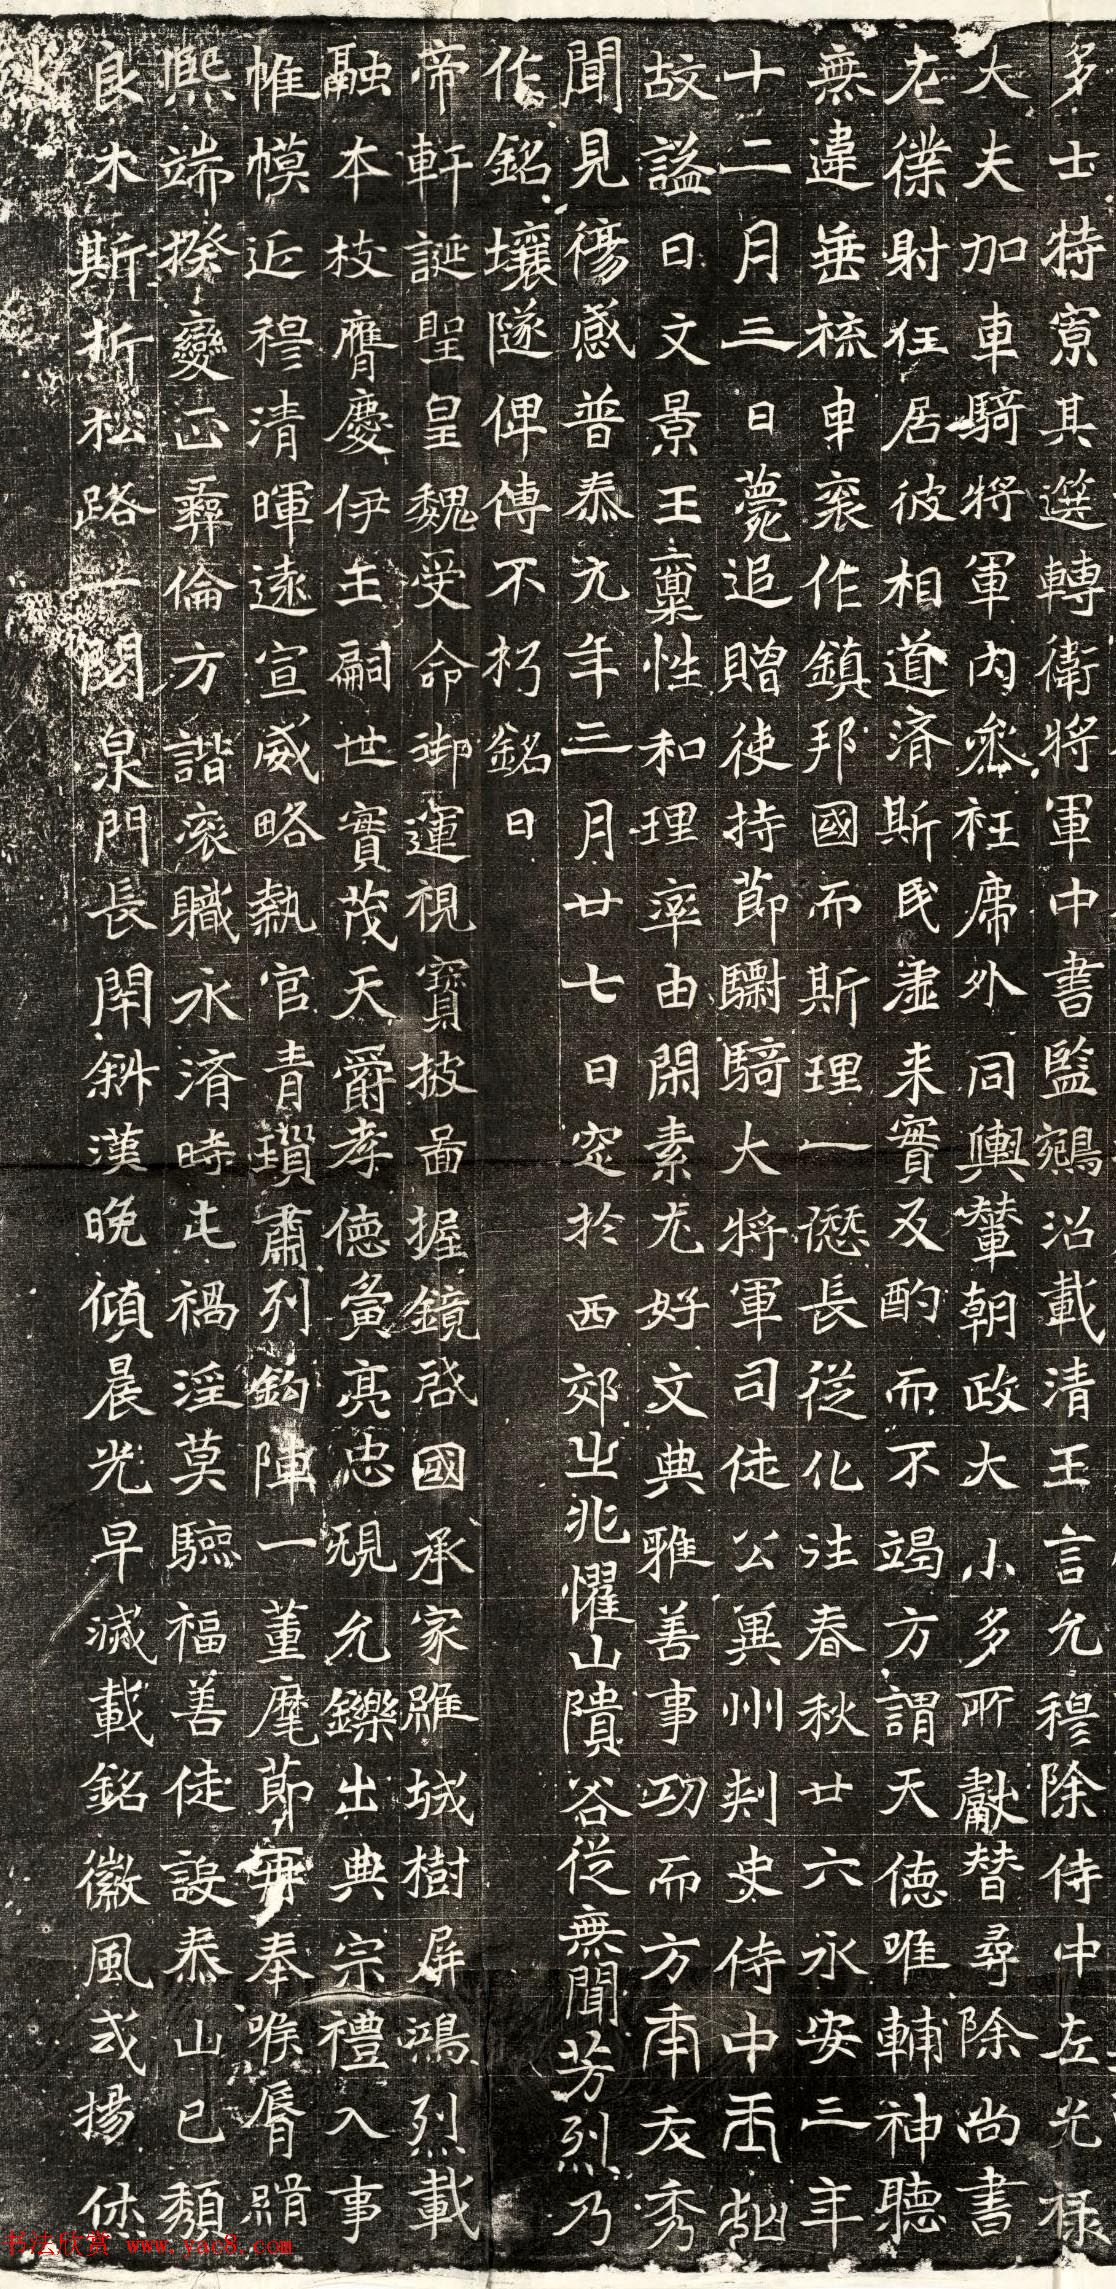 多士特寮其選轉衛將軍中書監鵷沼載清王言允穆除侍中左光祿
大夫加車騎將軍內參衽席外同輿輦朝政大小多所獻替尋除尚書
左僕射任居彼相道济斯民虛来實反酌而不竭方謂天德唯輔神聽
無違垂旒車衮作鎮邦國而斯理一愆長從化往春秋廿六永安三年
十二月三日薨追贈使持節驃騎大將軍司徒公兾州刾史侍中王如
故謚曰文景王稟性和理率由閑素尤好文典雅善事功而方申
聞見傷感普泰元年三月廿七日窆於西郊之兆懼山隤谷從無聞芳烈乃
作銘壤隧俾傳不朽銘曰
帝軒誕聖皇魏受命御運視寶披啚握鏡啓國承家雕城樹屏鴻烈載
融本枝膺慶伊王嗣世實茂天爵孝德亮忠允鑠出典宗禮入事
帷幙近穆清暉遠宣威略執官青瑣肅列鈎陣一董麾節再奉喉脣緝
熈端揆變正彝倫方諧衮職永济時屯禍淫莫驗福善徒設泰山已頹
良木斯折松路一閟泉門長閇斜漢晚傾晨光早滅載銘徽風式揚休
书法欣赏 www.yac8.com